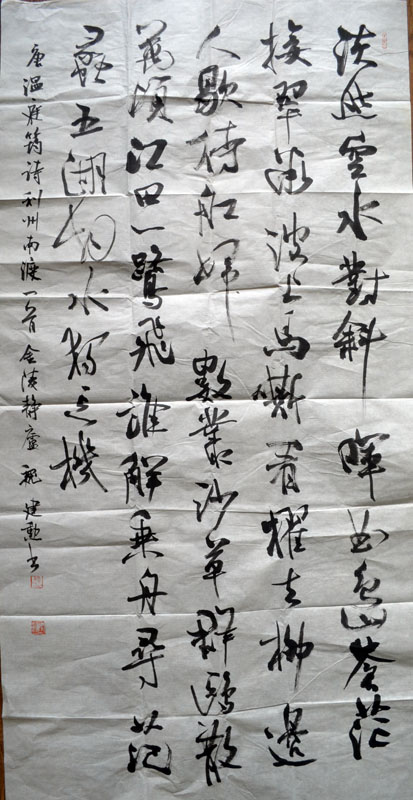 淡然空水對斜暉曲島蒼茫
接翠微波上馬嘶看櫂去柳邊
人歇待船歸數叢沙草群鷗散
萬頃江田一鷺飛誰解乘舟尋范
蠡五湖煙水獨忘機
唐溫庭筠詩利州南渡一首金陵靜廬建勳書